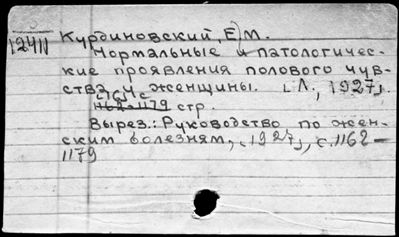 12411
Курдиновский, Е. М.
Нормальные и патологичес-
кие проявления полового чув-
ства у женщины. [Л., 1927].
с. 1162-1179 стр.
Вырез.: Руководство по жен-
ским болезням, [1927], с. 1162-
1179